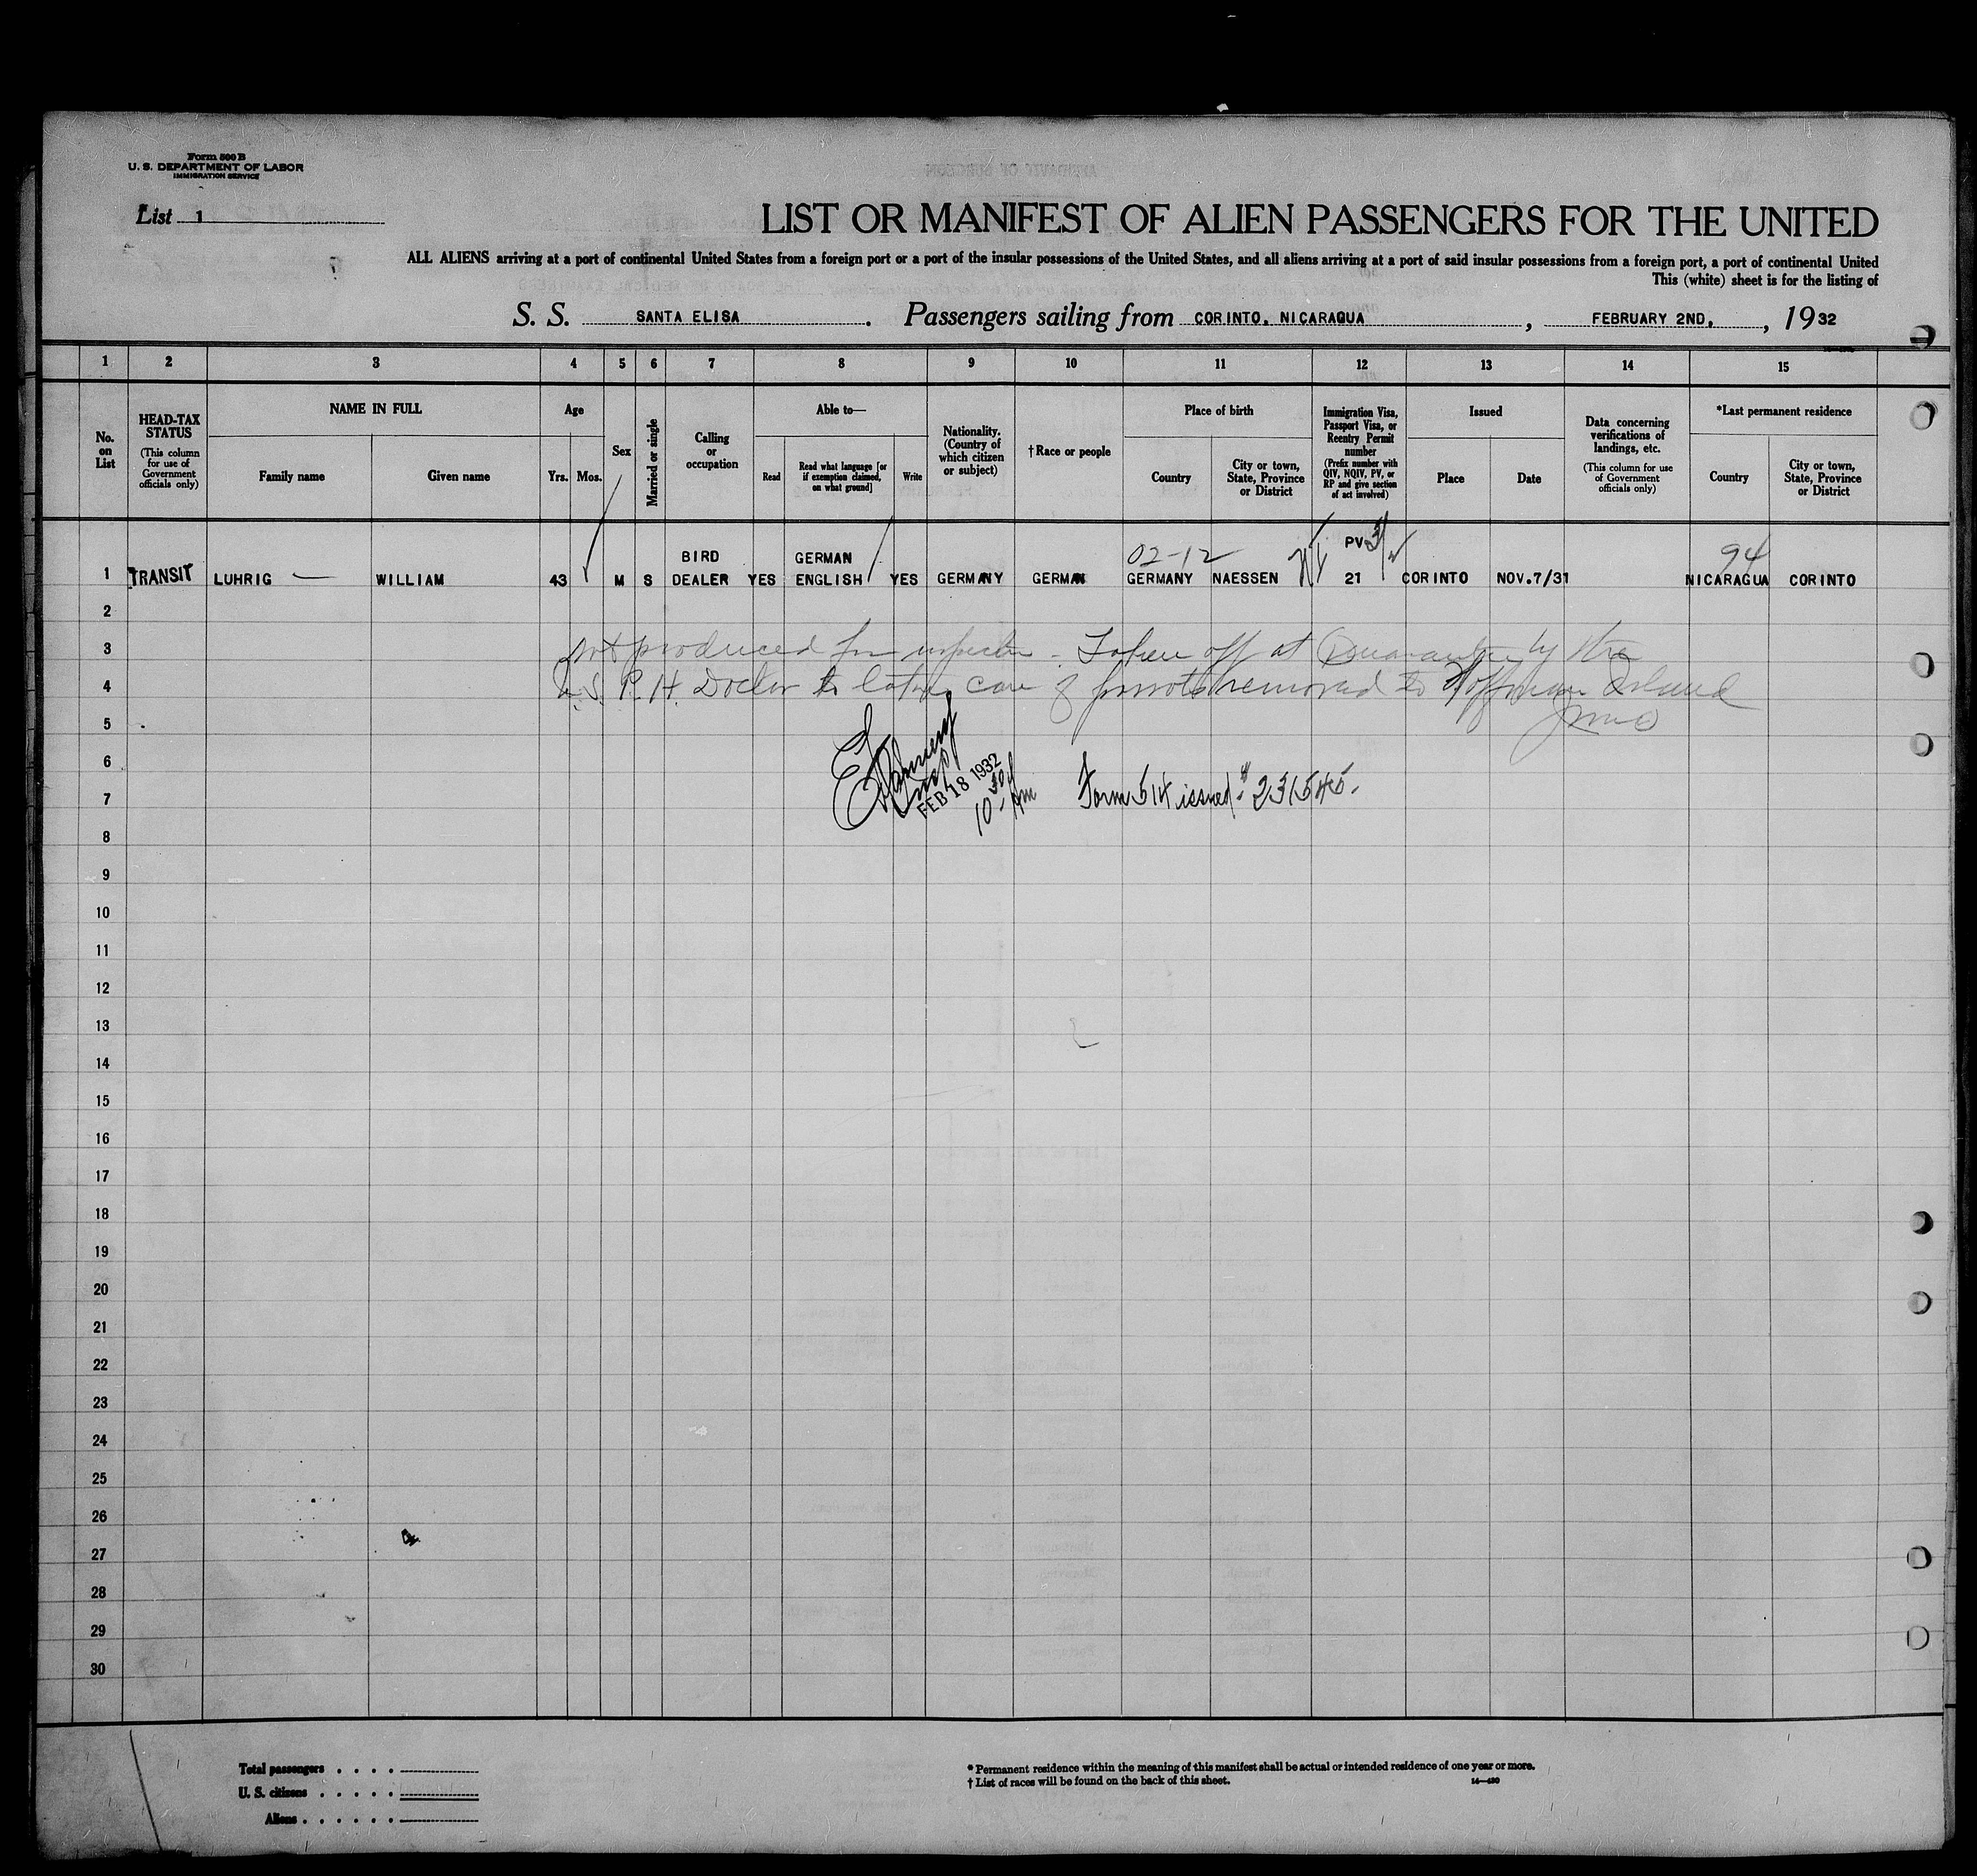 Form 500 B
U. S. DEPARTMENT OF LABOR
IMMIGRATION SERVICE
List 1
LIST OR MANIFEST OF ALIEN PASSENGERS FOR THE UNITED
ALL ALIENS arriving at a port of continental United States from a foreign port or a port of the insular possessions of the United States, and all aliens arriving at a port of said insular possessions from a foreign port, a port of continental United
This (white) sheet is for the listing of
S. S. SANTA ELISA. Passengers sailing from CORINTO, NICARAGUA, FEBRUARY 2ND, , 1932
1 2 3 4 5 6 7 8 9 10 11 12 13 14 15
No. on List
HEAD-TAX STATUS
(This column for use of Government officials only)
NAME IN FULL
Family name
Given name
Age
Yrs. Mos.
Sex
Married or single
Calling or occupation
Able to—
Read
Read what language [or if exemption claimed, on what ground]
Write
Nationality. (Country of which citizen or subject)
†Race or people
Place of birth
Country
City or town, State, Province or District
Immigration Visa, Passport Visa, or Reentry Permit number
(Prefix number with QIV, NQIV, PV, or RP and give section of act involved)
Issued
Place
Date
Data concerning verifications of landings, etc.
(This column for use of Government officials only)
*Last permanent residence
Country
City or town, State, Province or District
BIRD GERMAN 02-12 PV 94
1 TRANSIT LUHRIG — WILLIAM 43 M S DEALER YES ENGLISH YES GERMANY GERMAN GERMANY NAESSEN 21 CORINTO NOV.7/31 NICARAGUA CORINTO
2
3 not produced for inspection - Taken off at Quarantine by the
4 U.S. P. H. Doctor to take care of parrots removed to Hoffman Island
5
6
FEB 18 1932
10 30 pm
7 Form 514 issued # 231545.
8
9
10
11
12
13
14
15
16
17
18
19
20
21
22
23
24
25
26
27
28
29
30
Total passengers . . . .
U. S. citizens . . . . .
Aliens . . . . . .
* Permanent residence within the meaning of this manifest shall be actual or intended residence of one year or more.
† List of races will be found on the back of this sheet.
14—430